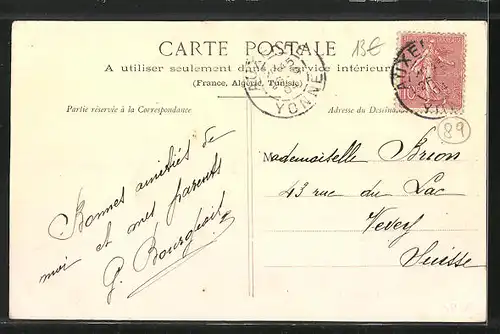 CARTE POSTALE
A utiliser seulement dans le service intérieur
(France, Algérie, Tunisie)
Partie réservée à la Correspondance
Adresse du Destin
13€
YONNE
AUXE
89
Mademoiselle Brion
43 rue du Lac
Vevey
Suisse
Bonnes amitiés de
moi et mes parents
G. Bourgeois